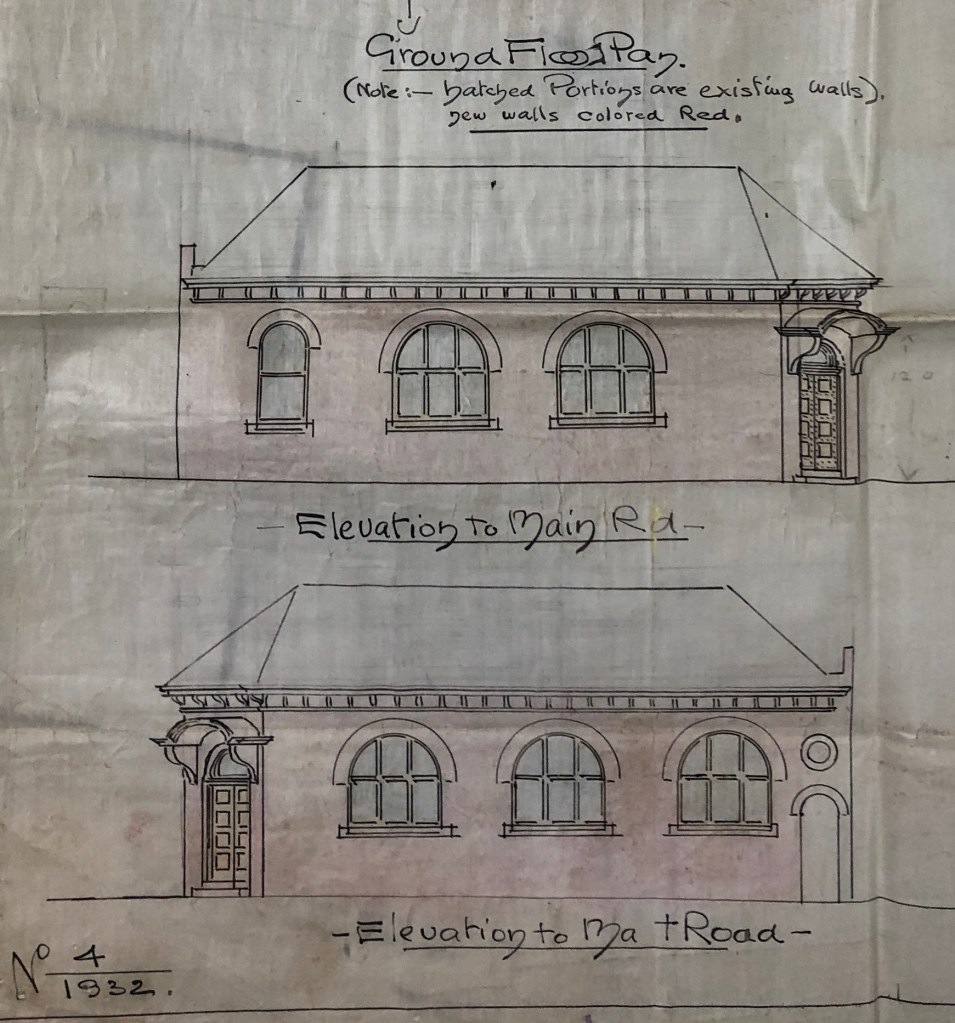 Ground Floor Pan.
(Note:— hatched Portions are existing walls).
new walls colored Red.
12 0
— Elevation to Main Rd —
— Elevation to Ma t Road —
No 4
1932.